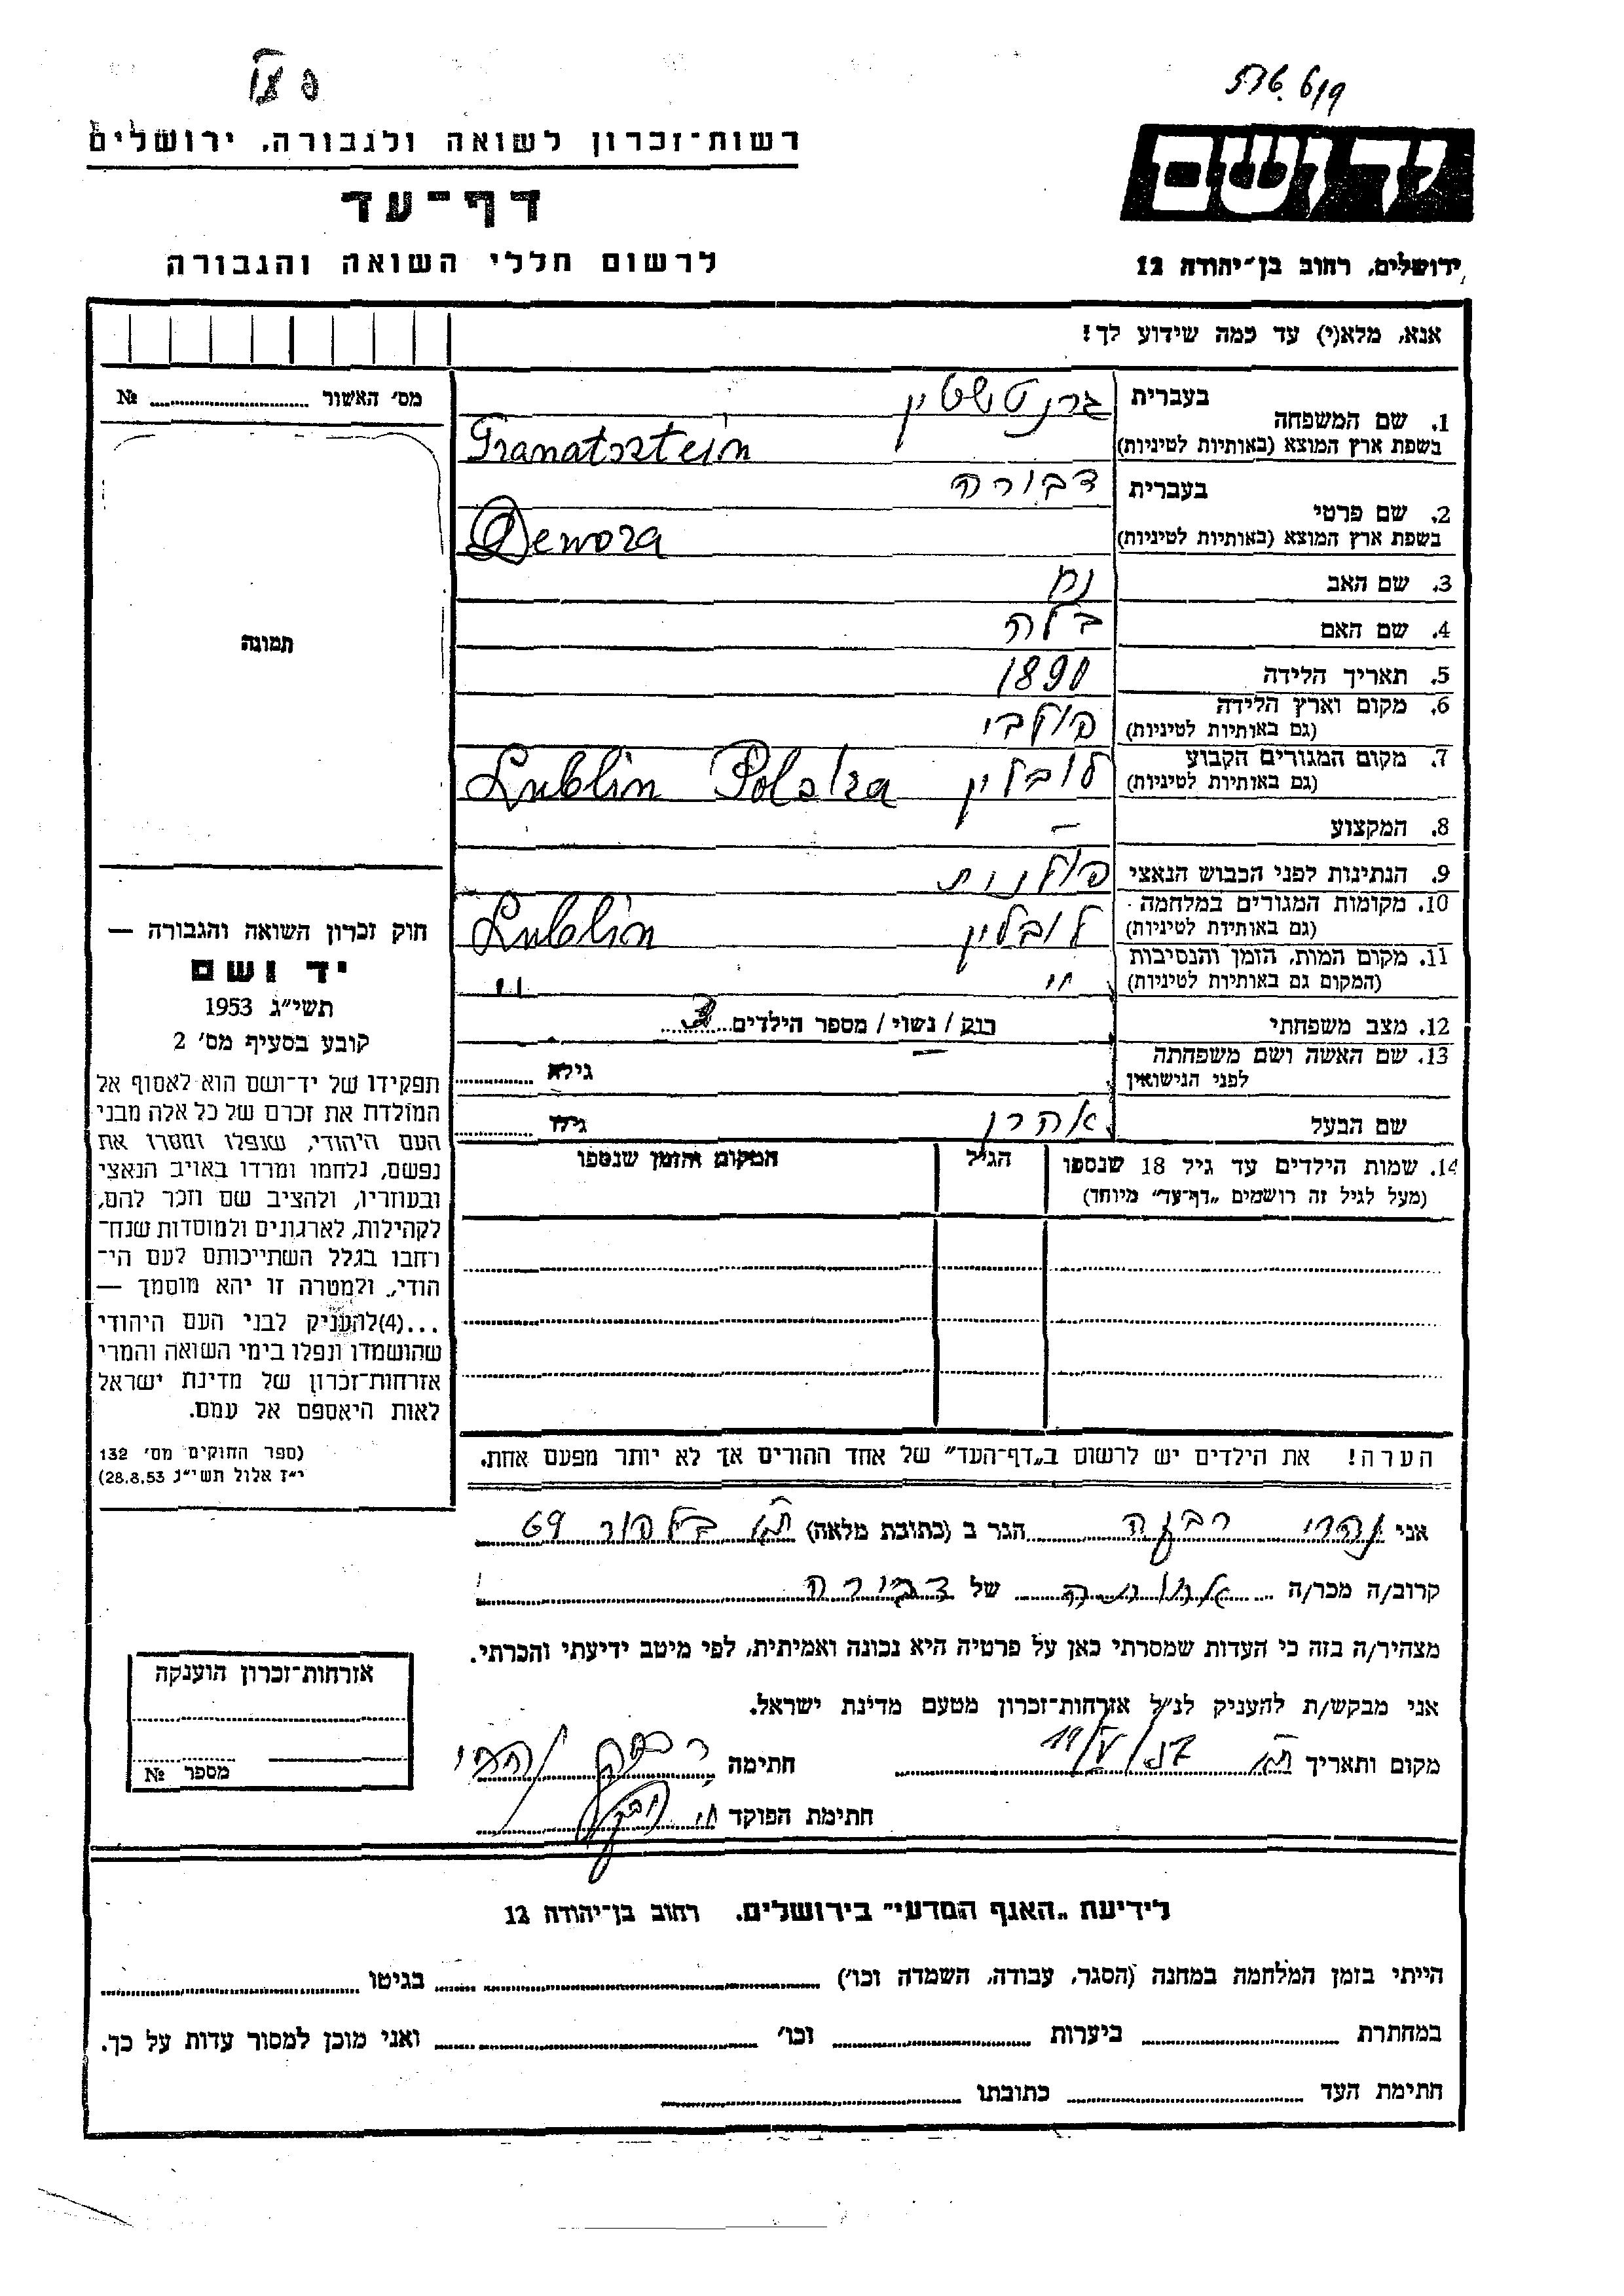 רשות־זכרון לשואה ולגבורה, ירושלים
דף־עד
לרשום חללי השואה והגבורה
יד ושם
ירושלים, רחוב בן־יהודה 12
אנא, מלא(י) עד כמה שידוע לך!
מס׳ האשור № 
1. שם המשפחה
בעברית
גרנטשטין
בשפת ארץ המוצא (באותיות לטיניות)
Granatsztein
2. שם פרטי
בעברית
דבורה
בשפת ארץ המוצא (באותיות לטיניות)
Dewora
3. שם האב נח
4. שם האם בלה
5. תאריך הלידה 1890
6. מקום וארץ הלידה
(גם באותיות לטיניות) פולבי
7. מקום המגורים הקבוע
(גם באותיות לטיניות) לובלין Lublin Polska
8. המקצוע —
9. הנתינות לפני הכבוש הנאצי פולנית
10. מקומות המגורים במלחמה
(גם באותיות לטיניות) לובלין Lublin
11. מקום המות, הזמן והנסיבות
(המקום גם באותיות לטיניות) " "
12. מצב משפחתי רוק / נשוי / מספר הילדים 3
13. שם האשה ושם משפחתה
לפני הנישואין
גילא
שם הבעל אהרן גילו
14. שמות הילדים עד גיל 18 שנספו
(מעל לגיל זה רושמים „דף־עד״ מיוחד)
הגיל
המקום והזמן שנספו
תמונה
חוק זכרון השואה והגבורה —
יד ושם
תשי״ג 1953
קובע בסעיף מס׳ 2
תפקידו של יד־ושם הוא לאסוף אל
המולדת את זכרם של כל אלה מבני
העם היהודי, שנפלו ומסרו את
נפשם, נלחמו ומרדו באויב הנאצי
ובעוזריו, ולהציב שם וזכר להם,
לקהילות, לארגונים ולמוסדות שנח־
רחבו בגלל השתייכותם לעם הי־
הודי, ולמטרה זו יהא מוסמך —
...(4)להעניק לבני העם היהודי
שהושמדו ונפלו בימי השואה והמרי
אזרחות־זכרון של מדינת ישראל
לאות היאספם אל עמם.
(ספר החוקים מס׳ 132
י״ז אלול תשי״ג 28.8.53)
הערה! את הילדים יש לרשום ב„דף־העד״ של אחד ההורים אך לא יותר מפעם אחת.
אני נהרי הגר ב (כתובת מלאה) 69
קרוב/ה מכר/ה של דבורה
מצהיר/ה בזה כי העדות שמסרתי כאן על פרטיה היא נכונה ואמיתית, לפי מיטב ידיעתי והכרתי.
אני מבקש/ת להעניק לנ״ל אזרחות־זכרון מטעם מדינת ישראל.
מקום ותאריך חתימה
חתימת הפוקד
אזרחות־זכרון הוענקה
מספר №
לידיעת „האגף המדעי״ בירושלים, רחוב בן־יהודה 12
הייתי בזמן המלחמה במחנה (הסגר, עבודה, השמדה וכו׳) בגיטו
במחתרת ביערות וכו׳ ואני מוכן למסור עדות על כך.
חתימת העד כתובתו